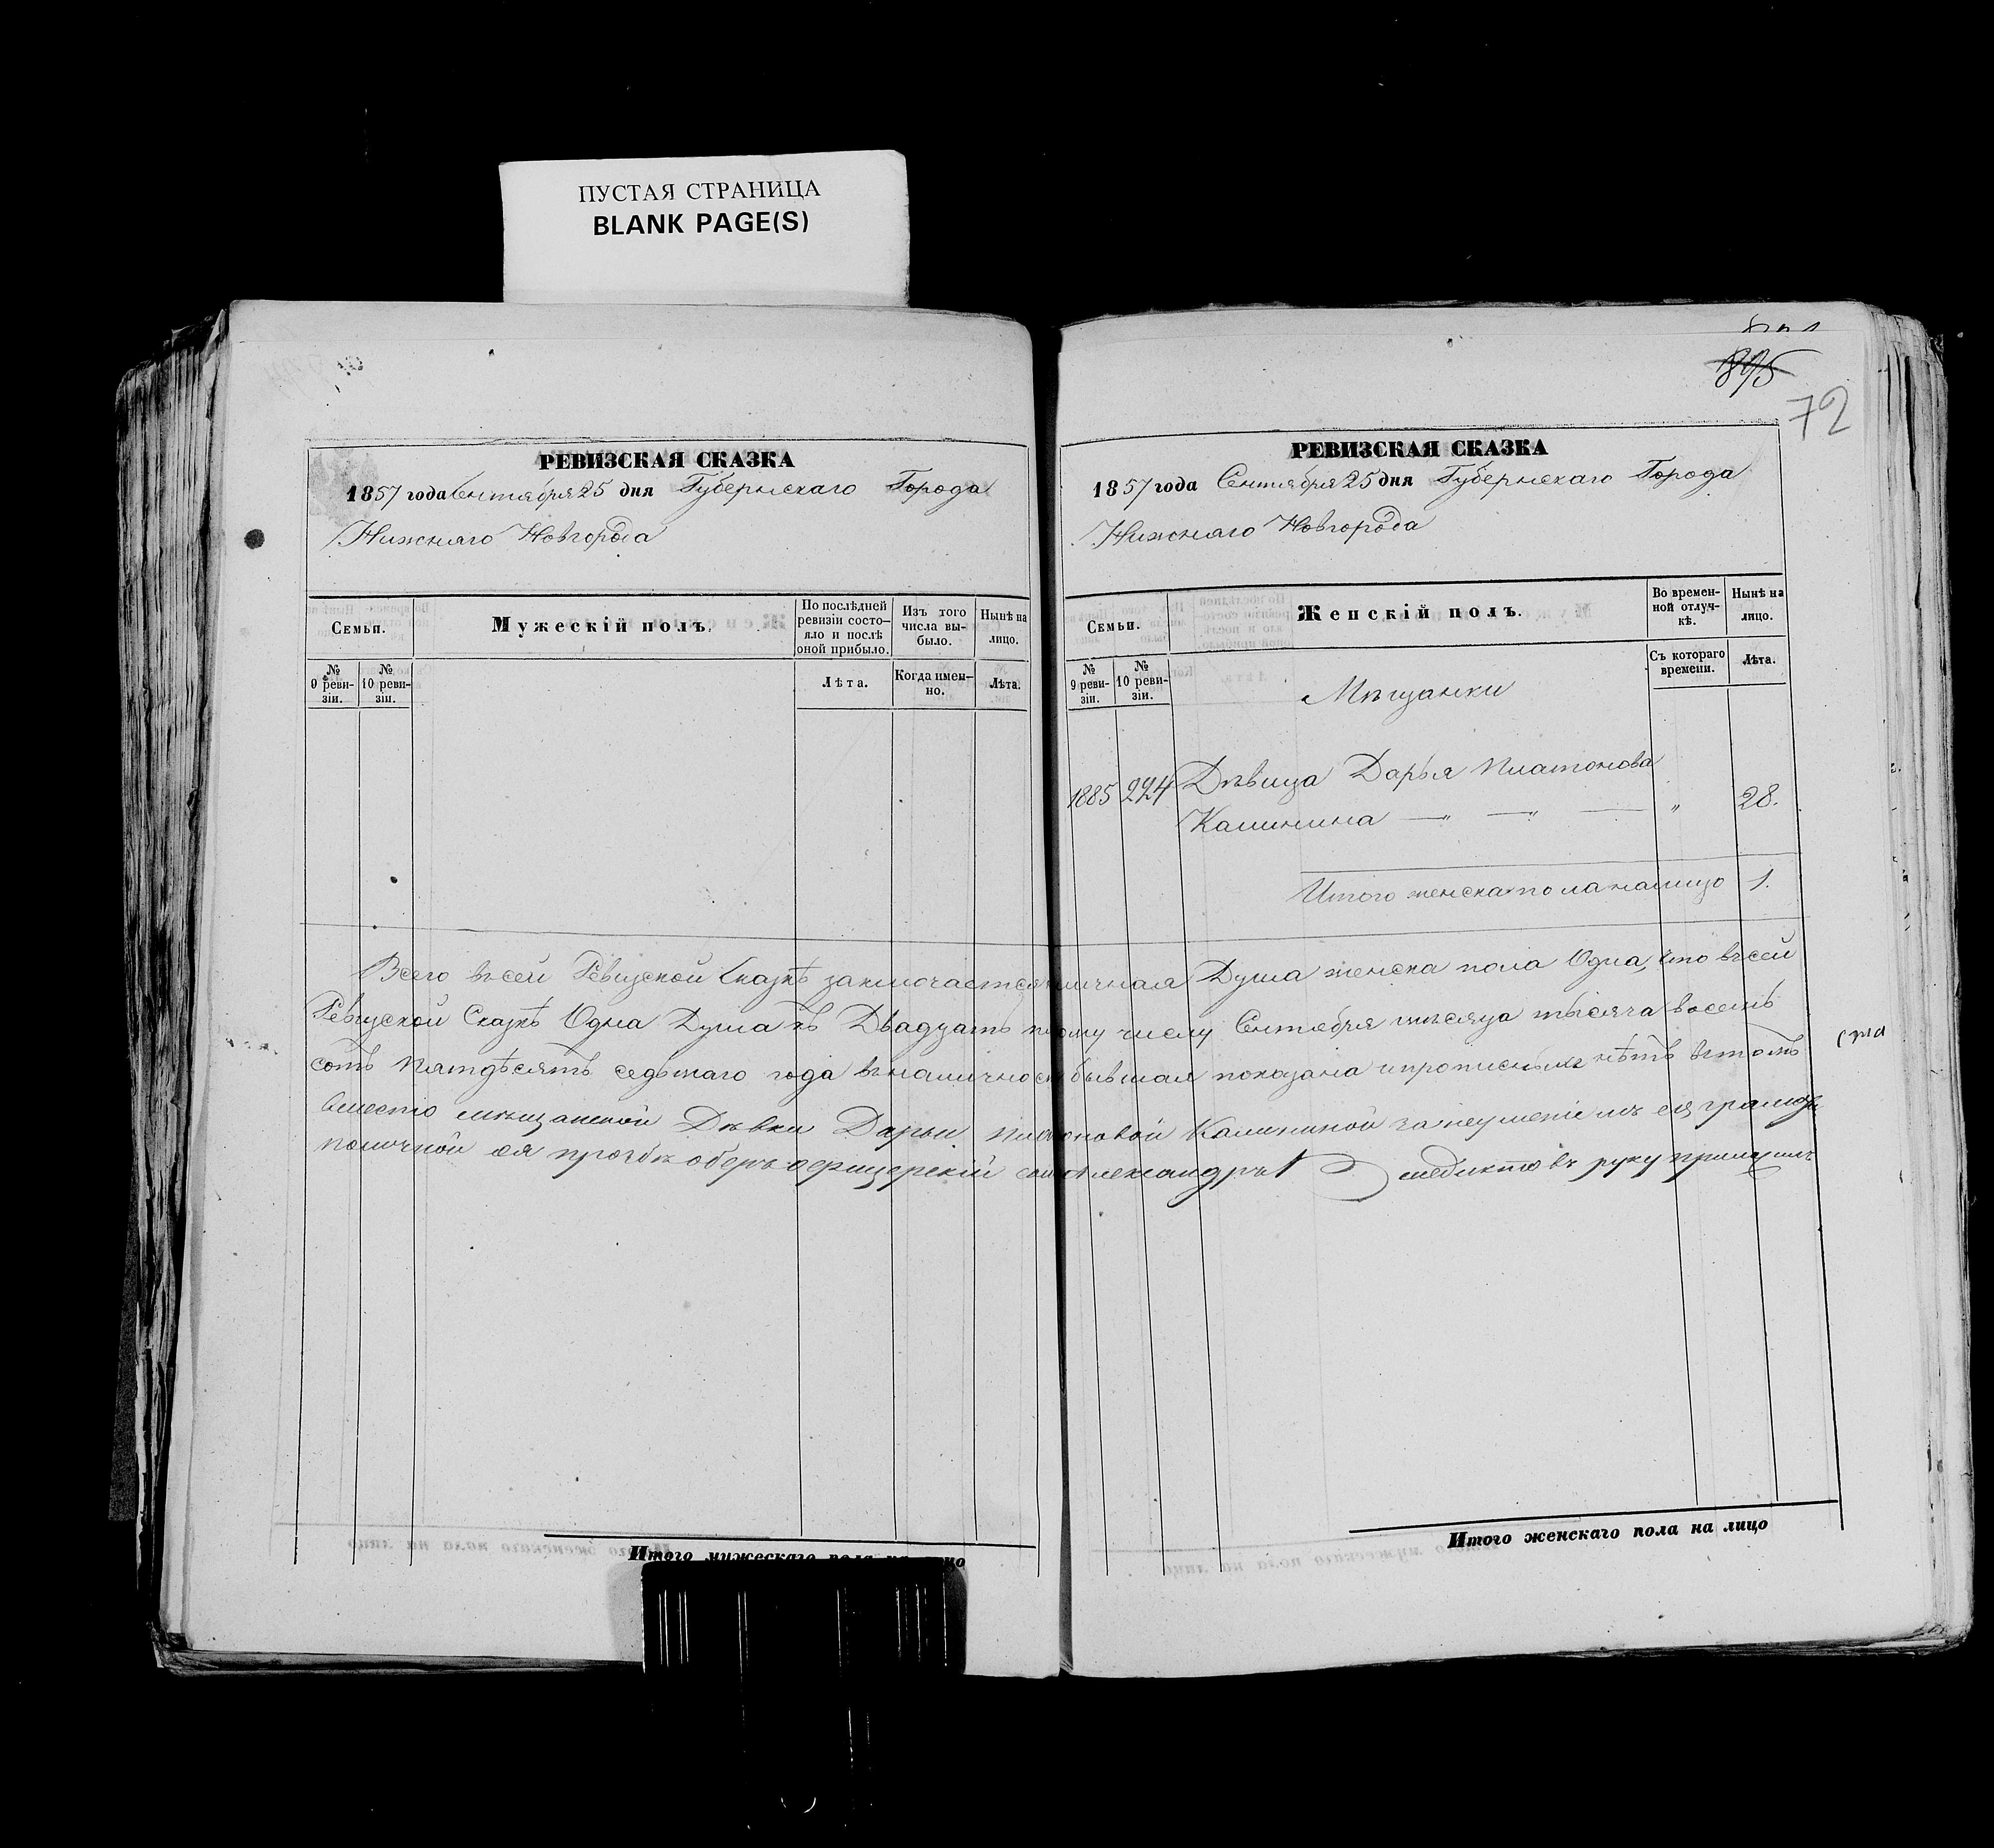 ПУСТАЯ СТРАНИЦА
BLANK PAGE(S)
895
72
РЕВИЗСКАЯ СКАЗКА
1857 года Сентября 25 дня Губернскаго Города
Нижняго Новгорода
Семьи.
Мужескій полъ.
По послѣдней ревизіи состояло и послѣ оной прибыло.
Изъ того числа выбыло.
Нынѣ на лицо.
№ 9 ревизіи.
№ 10 ревизіи.
Лѣта.
Когда именно.
Лѣта.
РЕВИЗСКАЯ СКАЗКА
1857 года Сентября 25 дня Губернскаго Города
Нижняго Новгорода
Семьи.
Женскій полъ.
Во временной отлучкѣ.
Нынѣ на лицо.
№ 9 ревизіи.
№ 10 ревизіи.
Съ котораго времени.
Лѣта.
Мѣщанки
1885 224 Дѣвица Дарья Платонова
Калинина — " — " — " 28.
Итого женска пола налицо 1.
Всего въ сей Ревизской Сказкѣ заключается личная Душа женска пола Одна, что въ сей
Ревизской Сказкѣ Одна Душа къ Двадцать пятому числу Сентября мѣсяца тысяча восемь
сотъ пятдѣсятъ седьмаго года въ наличности бывшая показана и прописныхъ нѣтъ въ томъ
вместо мѣщанской Дѣвки Дарьи Платоновой Калининой за неуменіемъ ея грамоте
по личной ея прозбѣ оберъ офицерскій сынъ Александръ руку приложилъ
Итого мужескаго пола на лицо
Итого женскаго пола на лицо